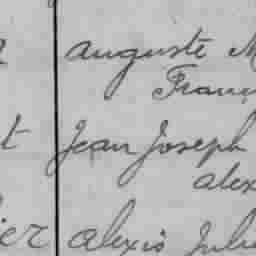 Auguste
Jean Joseph
alex
ier alexis Juli